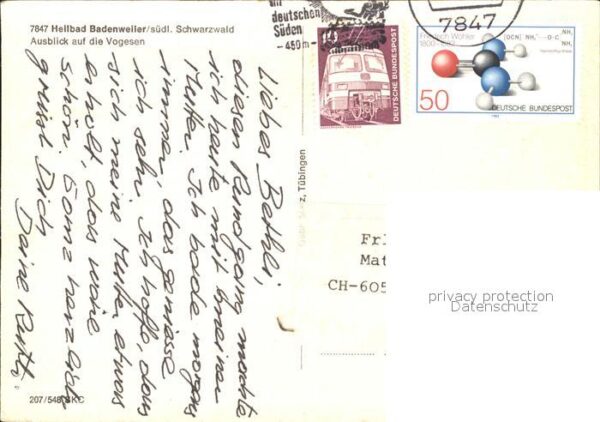 7847 Heilbad Badenweiler/südl. Schwarzwald
Ausblick auf die Vogesen
im
deutschen
Süden
- 450 m -
7847
10
DEUTSCHE BUNDESPOST
Friedrich Wöhler
1800-1882
[OCN]⁻ NH₄⁺
O=C
NH₂
NH₂
50
DEUTSCHE BUNDESPOST
1982
Liebes Bethli,
diesen Rundgang machte
ich heute mit meiner
Mutter. Ich bade morgens
immer, das geniesse
ich sehr. Ich hoffe, dass
sich meine Mutter etwas
erholt, das wäre
schön. Ganz herzlich
grüsst Dich
Deine Ruth
z, Tübingen
Fr
Mat
CH-605
privacy protection
Datenschutz
207/548 SKC